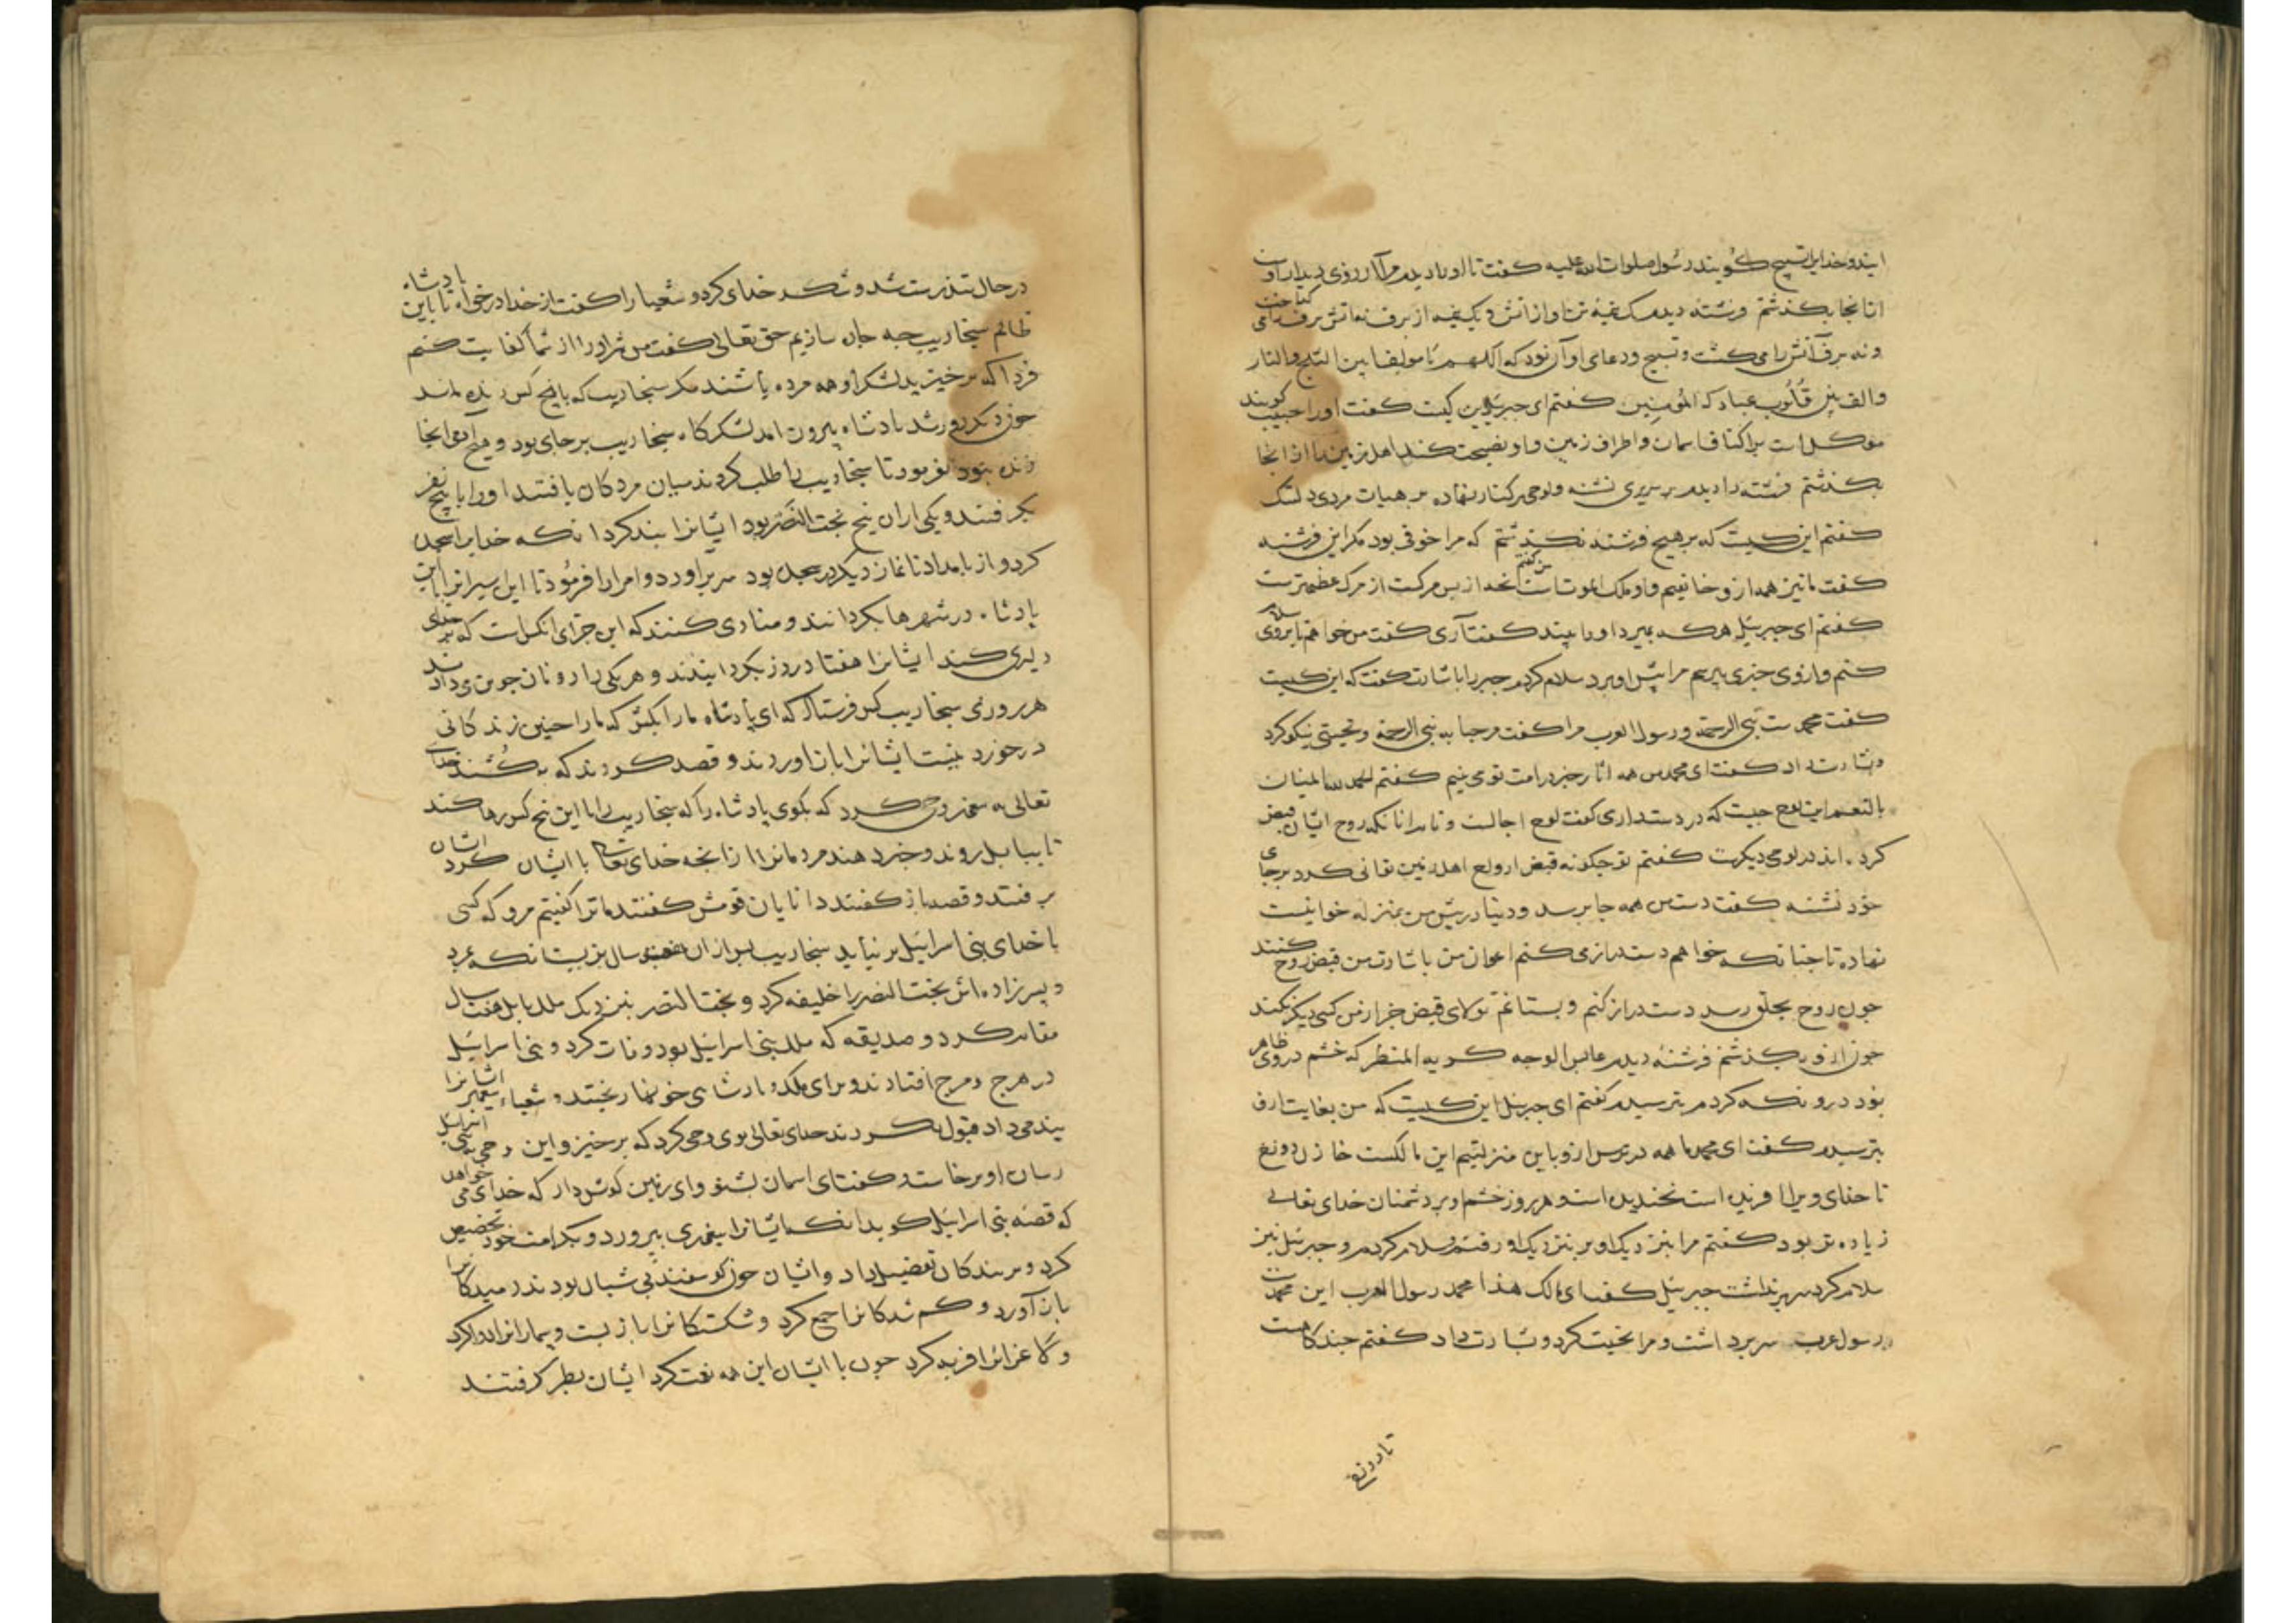 ایند و خدایرا تسبیح کویند رسول صلوات الله علیه کفت تا او را دیدم مرا آرزوی دیدار اوست
ازانجا بکذشتم فرشته دیدم یک نیمه تن او از اتش و یک نیمه از برف نه اتش برف را می کداخت
و نه برف آتش را می کشت و تسبیح و دعای او آن بود که اللهم یا مولفا بین الثلج والنار
والف بین قلوب عبادک المؤمنین کفتم ای جبرئیل این کیست کفت اورا حبیب کویند
موکل است بر اکناف اسمان و اطراف زمین و او نصیحت کند اهل زمین را ازانجا
بکذشتم فرشته را دیدم بر سریری نشسته و لوحی بر کنار نهاده بر هیات مردی دلتنک
کفتم این کیست که بر هیچ فرشته نکذشتم که مرا خوفی بود مکر این فرشته
کفت ما نیز همه ازو خایفیم و او ملک الموت است من کفتم انچه از پس مرکست از مرک عظیم ترست
کفتم ای جبرئیل هر که بمیرد او را بیند کفت آری کفت من خواهم تا بروی سلام
کنم و ازوی چیزی بپرسم مرا پیش او برد سلام کردم جبرئیل باشارت کفت که این کیست
کفت محمد ست نبی الرحمة و رسول العرب مرا کفت مرحبا به نبی الرحمة و تحیتی نیکو کرد
و بشارت داد کفت ای محمد من همه اثار خیر در امت تو می بینم کفتم الحمد لله المنان
بالنعم این لوح چیست که در دست داری کفت لوح اجالست و نام انانکه روح ایشان قبض
کرده اند در لوحی دیکرست کفتم تو چکونه قبض ارواح اهل زمین توانی کرد بر جای
خود نشسته کفت دست من همه جا برسد و دنیا در پیش من بمنزله خوانیست
نهاده تا چنانکه خواهم دست درازی کنم اعوان من باشارت من قبض روح کنند
چون روح بحلق رسد دست دراز کنم و بستانم تولای قبض جز از من کسی دیکر نکند
چون ازو بکذشتم فرشته دیدم عابس الوجه کریه المنظر که خشم در روی ظاهر
بود درو نکه کردم بترسیدم کفتم ای جبرئیل این کیست که من بغایت ازو
بترسیدم کفت ای محمد ما همه در ترس ازو باین منزلتیم این مالکست خازن دوزخ
تا خدای ویرا افریده است نخندیده است و هر روز خشم او بر دشمنان خدای تعالی
زیاده تر بود کفتم مرا بنزدیک او بر بنزدیک او رفتم و سلام کردم و جبرئیل نیز
سلام کرد سر برنداشت جبرئیل کفت ای مالک هذا محمد رسول العرب این محمدست
رسول عرب سر برداشت و مرا تحیت کرد و بشارت داد کفتم چندکاهست
تا دوزخ
در حال تندرست شد و شکر خدای کرد و شعیا را کفت از خدا درخواه تا با این پادشاه
ظالم سنجاریب چه چاره سازیم حق تعالی کفت من شر او را از شما کفایت کنم
فردا که برخیزید لشکر او همه مرده باشند مکر سنجاریب که با پنج کس زنده ماند
چون دیکر روز شد پادشاه بیرون امد لشکرکاه سنجاریب بر جای بود و هیچ آدمی انجا
زنده نبود بفرمود تا سنجاریب را طلب کردند میان مردکان یافتند او را با پنج نفر
بکرفتند و یکی ازان پنج بخت النصر بود ایشانرا بند کرد انکه خدایرا سجده
کرد و از بامداد تا نماز دیکر در سجده بود سر براورد و امرا را فرمود تا این اسیرانرا با این
پادشاه در شهرها بکردانند و منادی کنند که این جزای انکس است که بر خدای
دلیری کند ایشانرا هفتاد روز بکردانیدند و هر یکی را دو نان جوین می دادند
هر روزی سنجاریب کس فرستاد که ای پادشاه ما را بکش که ما را چنین زندکانی
در خورد نیست ایشانرا باز اوردند و قصد کردند که بکشند خدای
تعالی به پیغمبر وحی کرد که بکوی پادشاه را که سنجاریب را با این پنج کس رها کند
تا ببابل روند و خبر دهند مردمانرا از انچه خدای تعالی با ایشان کرد ایشان
برفتند و قصه باز کفتند دانایان قومش کفتند ما ترا کفتیم مرو که کسی
با خدای بنی اسرائیل بر نیاید سنجاریب پس از ان هفت سال بزیست انکه بمرد
و پسر زاده اش بخت النصر را خلیفه کرد و بخت النصر بنزدیک ملک بابل هفت سال
مقام کرد و صدیقه که ملک بنی اسرائیل بود وفات کرد و بنی اسرائیل
در هرج و مرج افتادند و برای ملک و پادشاهی خونها ریختند و شعیاء پیغمبر ایشانرا
پند می داد قبول نکردند خدای تعالی بوی وحی کرد که برخیز و این وحی به بنی اسرائیل
رسان او برخاست و کفت ای اسمان بشنو و ای زمین کوش دار که خدای می خواهد
که قصه بنی اسرائیل کوید انکه ایشانرا بنعمت بپرورد و بکرامت خود تخصیص
کرد و بر بندکان تفضیل داد و ایشان چون کوسفند بی شبان بودند رمیدکانرا
باز آورد و کم شدکانرا جمع کرد و شکستکانرا باز بست و بیمارانرا دوا کرد
و لاغرانرا فربه کرد چون با ایشان این همه نعمت کرد ایشان بطر کرفتند